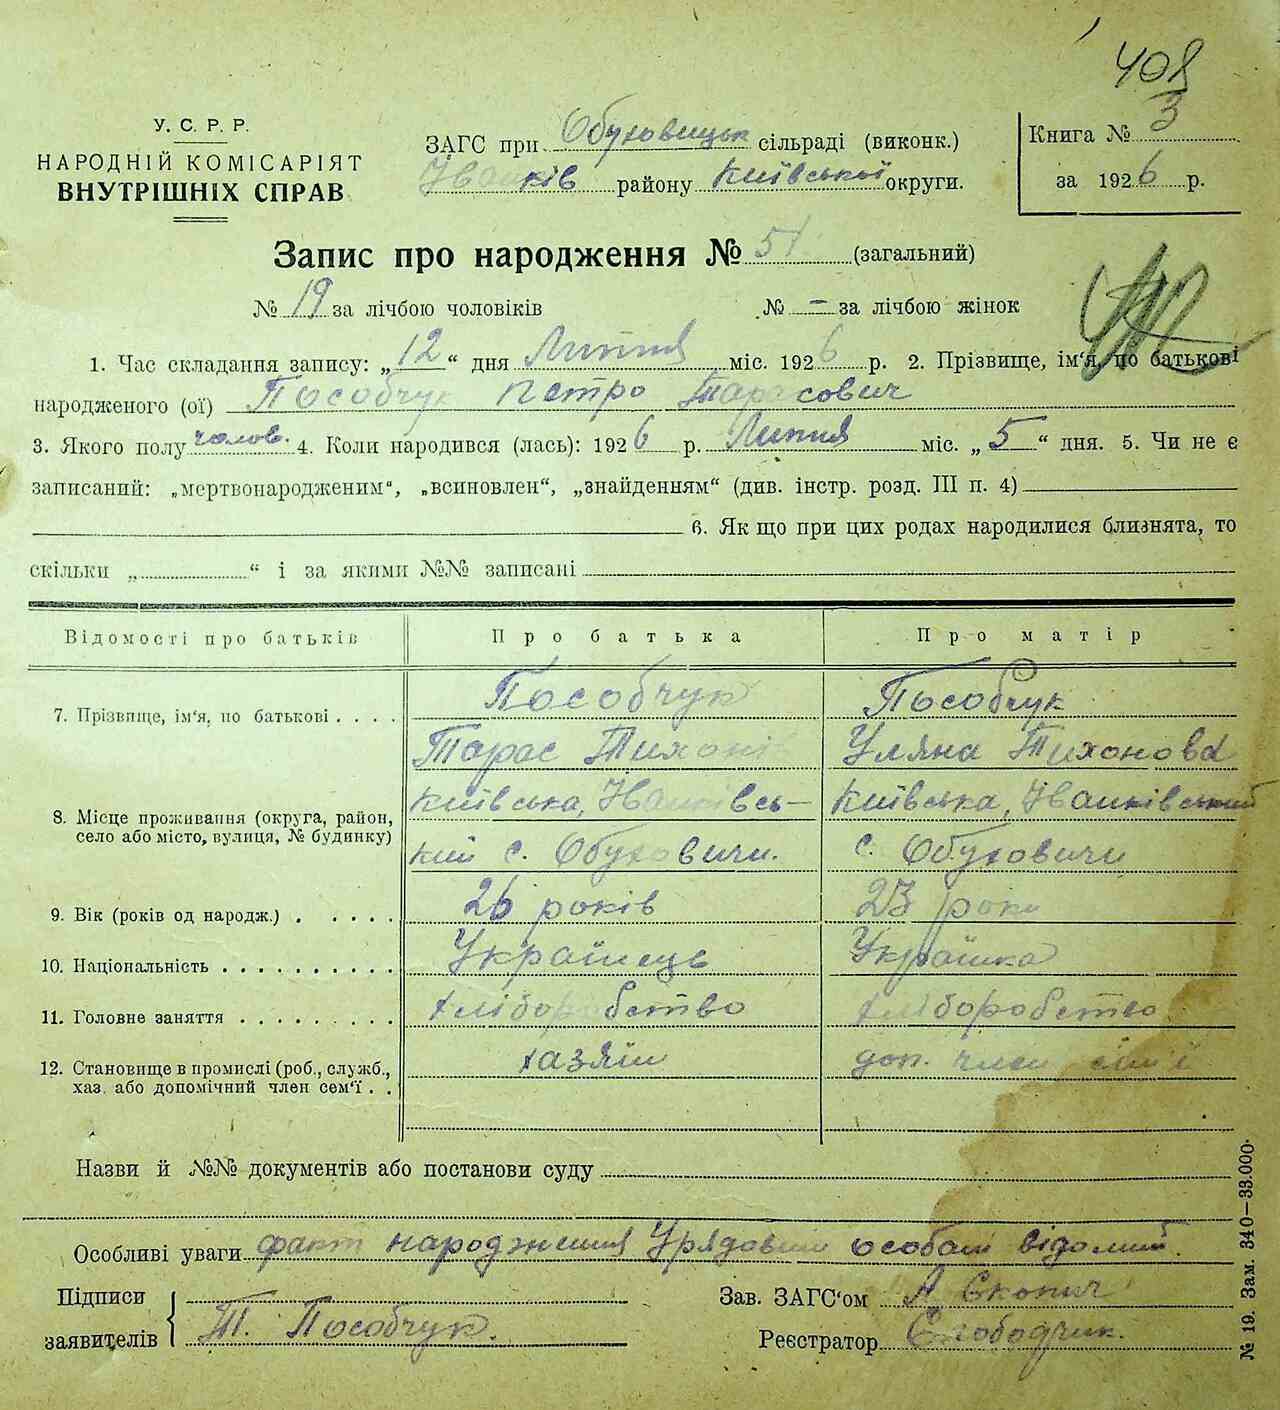 408
У. С. Р. Р.
НАРОДНІЙ КОМІСАРІЯТ
ВНУТРІШНІХ СПРАВ
ЗАГС при Обуховицьк сільраді (виконк.)
Іванків району Київської округи.
Книга № 3
за 1926 р.
Запис про народження № 51 (загальний)
№ 19 за лічбою чоловіків № – за лічбою жінок
1. Час складання запису: „12“ дня Липня міс. 1926 р. 2. Прізвище, ім'я, по батькові
народженого (ої) Пособчук Петро Тарасович
3. Якого полу чолов. 4. Коли народився (лась): 1926 р. Липня міс. „5“ дня. 5. Чи не є
записаний: „мертвонародженим“, „всиновлен“, „знайденням“ (див. інстр. розд. III п. 4)
6. Як що при цих родах народилися близнята, то
скільки „ “ і за якими №№ записані
Відомості про батьків Про батька Про матір
7. Прізвище, ім'я, по батькові . . . . Пособчук Пособчук
Тарас Тихонів Уляна Тихонова
8. Місце проживання (округа, район, село або місто, вулиця, № будинку) Київська, Іванківсь- Київська, Іванківський
кий с. Обуховичи. с. Обуховичи
9. Вік (років од народж.) . . . . . 26 років 23 роки
10. Національність . . . . . . . . . . Українець Українка
11. Головне заняття . . . . . . . . . Хліборобство Хліборобство
12. Становище в промислі (роб., служб., хаз. або допомічний член сем'ї . . хазяїн доп. член сім'ї
Назви й №№ документів або постанови суду
Особливі уваги факт народження Урядовим особам відомий.
Підписи заявителів Т. Пособчук.
Зав. ЗАГС'ом А Скопич
Реєстратор Слободчик.
№ 19. Зам. 340–33.000.